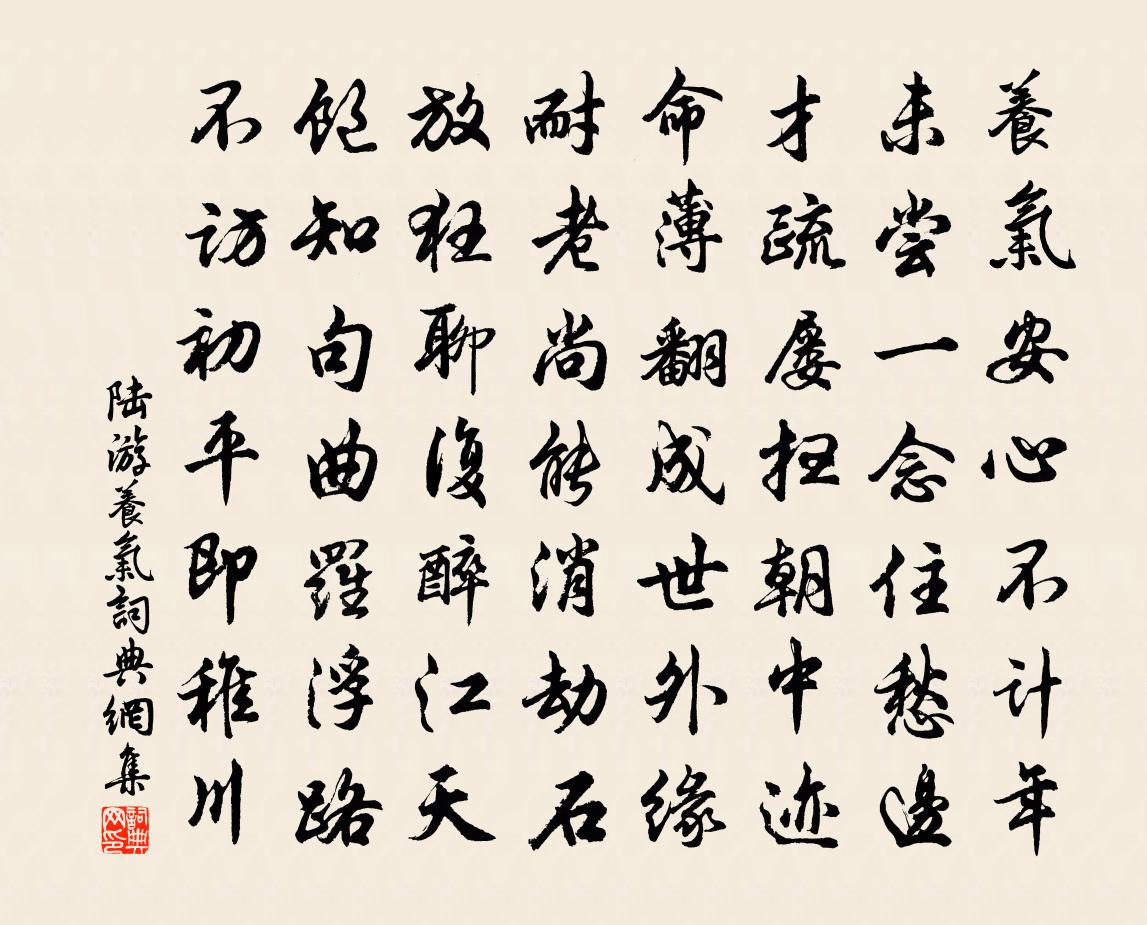 養氣安心不計年
未嘗一念住愁邊
才疏屡扫朝中迹
命薄翻成世外緣
耐老尚能消劫石
放狂聊復醉江天
飽知句曲羅浮路
不访初平即稚川
陆游養氣詞典網集
詞典网印